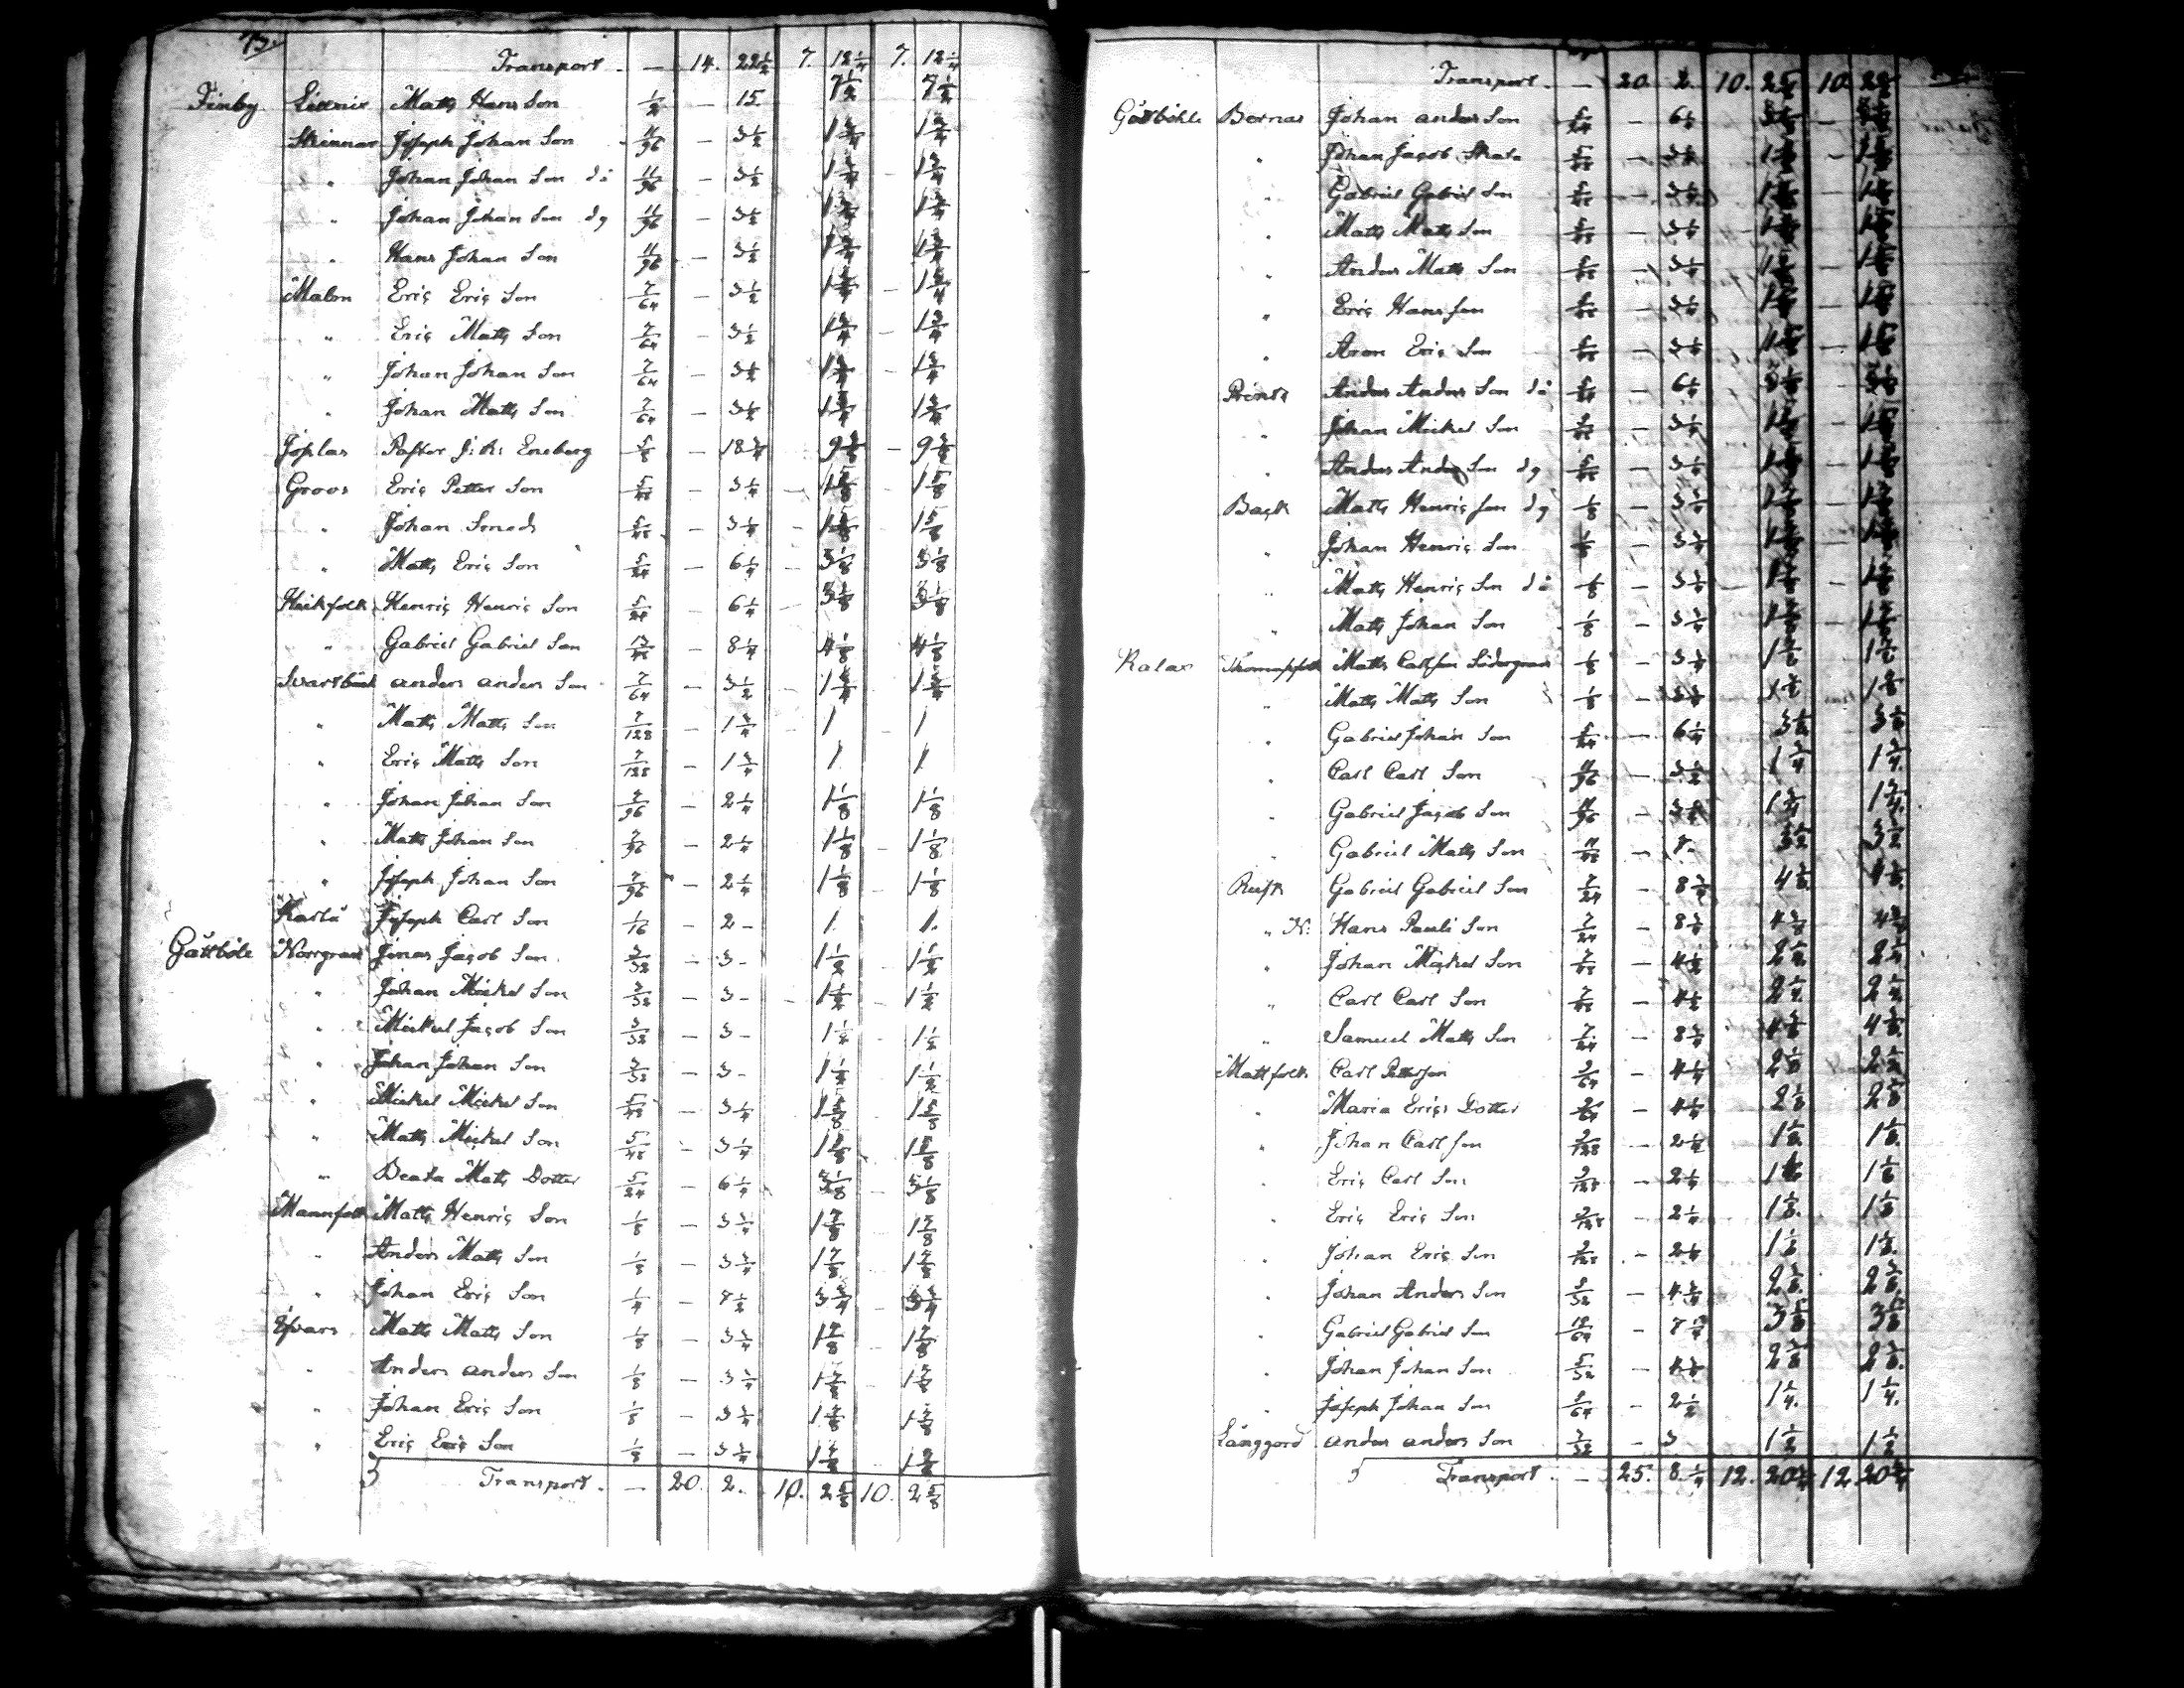 Transport. — 14. 22 1/2 7. 12 1/4 7. 12 1/4
Finby Matts Hans Son 1/2 — 15. 7 1/2 7 1/2
Skinnar Joseph Johan Son 11/96 — 3 1/2 1 3/4 1 3/4
" Johan Johan Son dä 11/96 — 3 1/2 1 3/4 1 3/4
" Johan Johan Son dy 11/96 — 3 1/2 1 3/4 1 3/4
" Hans Johan Son 11/96 — 3 1/2 1 3/4 1 3/4
Malm Eric Eric Son 7/64 — 3 1/2 1 3/4 — 1 3/4
" Eric Matts Son 7/64 — 3 1/2 1 3/4 — 1 3/4
" Johan Johan Son 7/64 — 3 1/2 1 3/4 — 1 3/4
" Johan Matts Son 7/64 — 3 1/2 1 3/4 1 3/4
Joplas Pastor J: R: Eneberg 5/8 — 18 3/4 9 3/8 — 9 3/8
Groos Eric Petter Son 5/48 — 3 1/4 — 1 5/8 1 5/8
" Johan Smeds 5/48 — 3 1/4 — 1 5/8 1 5/8
" Matts Eric Son 5/24 — 6 1/4 — 3 1/8 3 1/8
Heikfolk Henric Henric Son 5/24 — 6 1/4 — 3 1/8 3 1/8
" Gabriel Gabriel Son 13/48 — 8 1/4 4 1/8 4 1/8
Svartbäck anders anders Son 7/64 — 3 1/2 1 3/4 1 3/4
" Matts Matts Son 7/128 — 1 3/4 1 1
" Eric Matts Son 7/128 — 1 3/4 1 1
" Johan Johan Son 7/96 — 2 1/4 1 1/8 1 1/8
" Matts Johan Son 7/96 — 2 1/4 1 1/8 1 1/8
" Joseph Johan Son 7/96 — 2 1/4 1 1/8 1 1/8
Karlå Joseph Carl Son 1/16 — 2 — 1. 1.
Gåttböle Norrgran Jonas Jacob Son 3/32 — 3 — 1 1/2 1 1/2
" Johan Mickel Son 3/32 — 3 — 1 1/2 1 1/2
" Mickel Jacob Son 3/32 — 3 — 1 1/2 1 1/2
" Johan Johan Son 3/32 — 3 — 1 1/2 1 1/2
" Mickel Mickel Son 5/48 — 3 1/4 1 5/8 1 5/8
" Matts Mickel Son 5/48 — 3 1/4 1 5/8 1 5/8
" Beata Matts Dotter 5/24 — 6 1/4 3 1/8 3 1/8
Mannfolk Matts Henric Son 1/8 — 3 3/4 1 7/8 1 7/8
" Anders Matts Son 1/8 — 3 3/4 1 7/8 1 7/8
" Johan Eric Son 1/4 — 7 1/2 3 3/4 3 3/4
Matts Matts Son 1/8 — 3 3/4 1 7/8 1 7/8
" Anders anders Son 1/8 — 3 3/4 1 7/8 1 7/8
" Johan Eric Son 1/8 — 3 3/4 1 7/8 1 7/8
" Eric Eric Son 1/8 — 3 3/4 1 7/8 1 7/8
Transport. — 20. 2. 10. 2 5/8 10. 2 5/8
Transport. — 20. 2. 10. 2 5/8 10. 2 5/8
Gåttböhle Bernas Johan anders Son 5/24 — 6 1/4 3 1/8 3 1/8
" Johan Jacob Skata 5/48 — 3 1/4 1 5/8 — 1 5/8
" Gabriel Gabriel Son 5/48 — 3 1/4 1 5/8 — 1 5/8
" Matts Matts Son 5/48 — 3 1/4 1 5/8 — 1 5/8
" Anders Matts Son 5/48 — 3 1/4 1 5/8 — 1 5/8
" Eric Hansson 5/48 — 3 1/4 1 5/8 — 1 5/8
" Aron Eric Son 5/48 — 3 1/4 1 5/8 — 1 5/8
Prints Anders Anders Son dä 5/24 — 6 1/4 3 1/8 — 3 1/8
" Johan Mickel Son 5/48 — 3 1/4 1 5/8 — 1 5/8
" Anders Anders Son dy 5/48 — 3 1/4 1 5/8 — 1 5/8
Back Matts Henricsson dy 1/8 — 3 3/4 1 7/8 — 1 7/8
" Johan Henric Son 1/8 — 3 3/4 1 7/8 — 1 7/8
" Matts Henric Son dä 1/8 — 3 3/4 1 7/8 — 1 7/8
" Matts Johan Son 1/8 — 3 3/4 1 7/8 — 1 7/8
Kalax Matts Carlsson Södergran 1/8 — 3 3/4 1 7/8 1 7/8
" Matts Matts Son 1/8 — 3 3/4 1 7/8 1 7/8
" Gabriel Johan Son 5/24 — 6 1/4 3 1/8 3 1/8
" Carl Carl Son 11/96 — 3 1/2 1 3/4 1 3/4
" Gabriel Jacob Son 11/96 — 3 1/2 1 3/4 1 3/4
" Gabriel Matts Son 11/48 — 7 — 3 1/2 3 1/2
Rusk Gabriel Gabriel Son 7/24 — 8 3/4 4 3/8 4 3/8
" N: Hans Pauli Son 7/24 — 8 3/4 4 3/8 4 3/8
" Johan Mickel Son 7/48 — 4 1/2 2 1/4 2 1/4
" Carl Carl Son 7/48 — 4 1/2 2 1/4 2 1/4
" Samuel Matts Son 7/24 — 8 3/4 4 3/8 4 3/8
Mattfolk Carl Pettersson 9/64 — 4 1/4 2 1/8 2 1/8
" Maria Erics Dotter 9/64 — 4 1/4 2 1/8 2 1/8
" Johan Carlsson 9/128 — 2 1/4 1 1/8 1 1/8
" Eric Carl Son 9/128 — 2 1/4 1 1/8 1 1/8
" Eric Eric Son 9/128 — 2 1/4 1 1/8 1 1/8
" Johan Eric Son 9/128 — 2 1/4 1 1/8 1 1/8
" Johan Anders Son 5/32 — 4 3/4 2 3/8 2 3/8
" Gabriel Gabriel Son 7 1/4 3 5/8 3 5/8
" Johan Johan Son 5/32 — 4 3/4 2 3/8 2 3/8
" Joseph Johan Son 5/64 — 2 1/2 1 1/4 1 1/4
Långgord anders anders Son 3/32 — 3 1 1/2 1 1/2
Transport. — 25. 8. 1/4 12. 20 3/4 12. 20 3/4